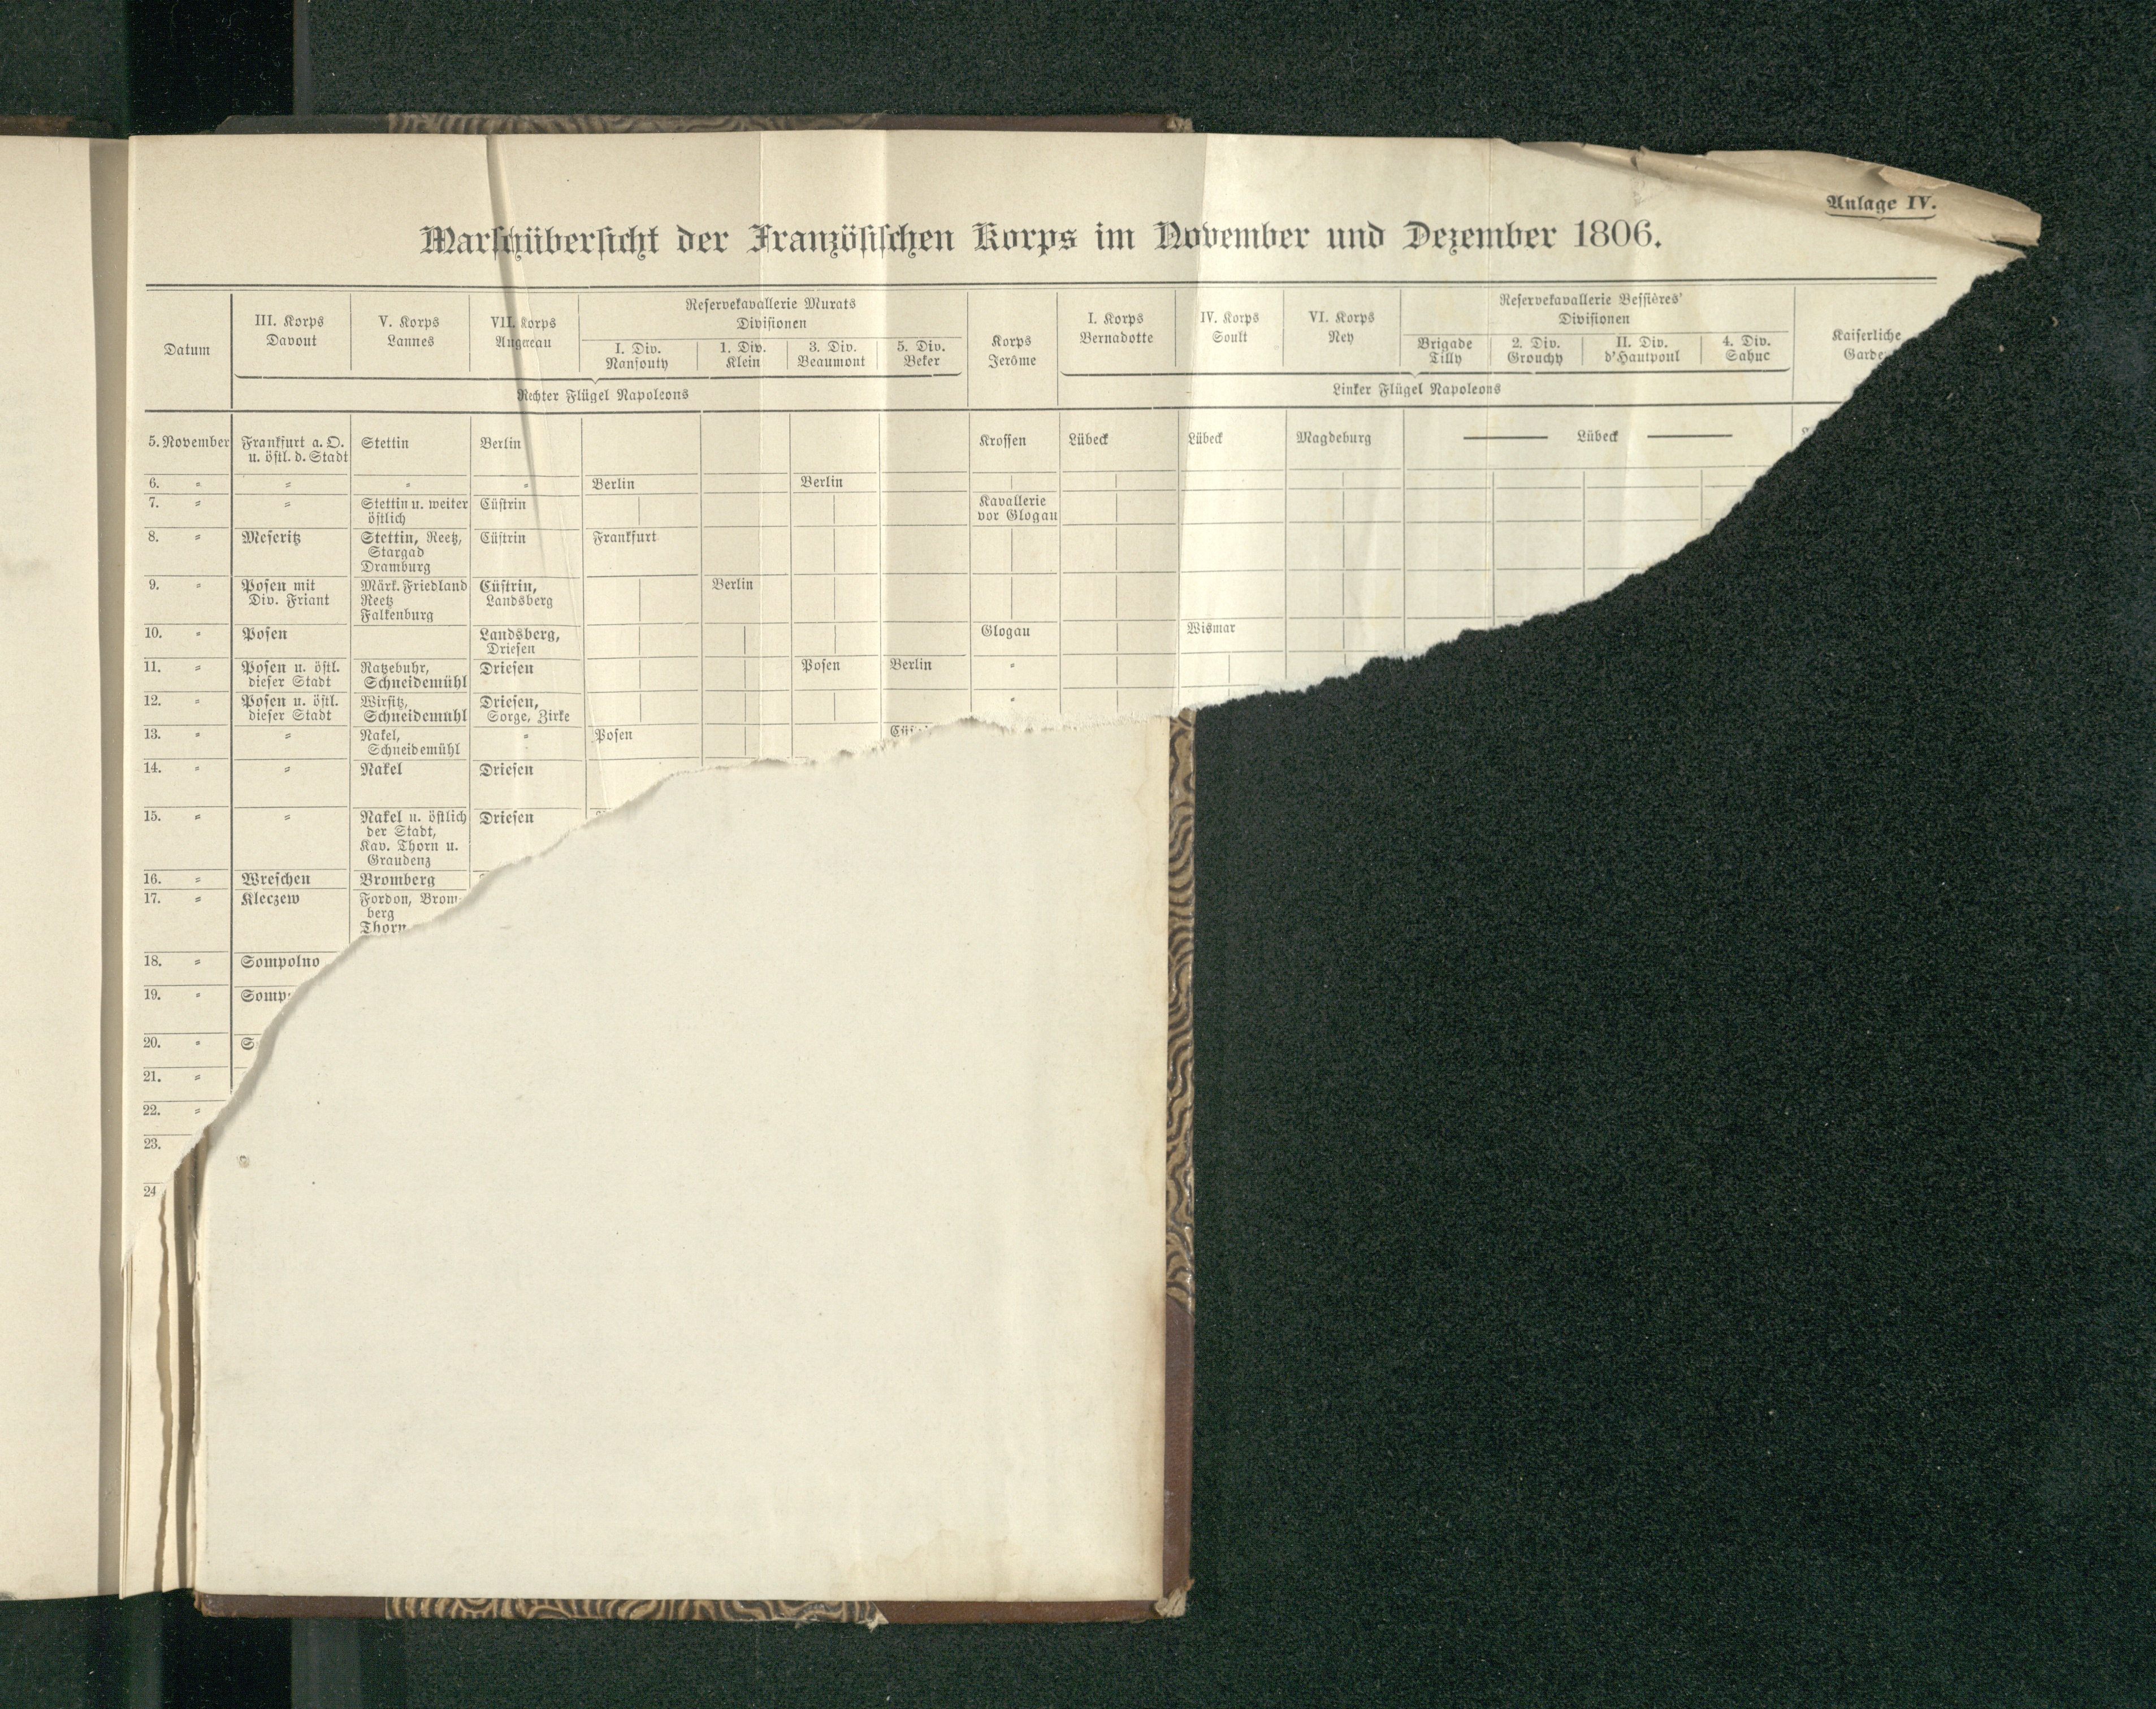 Anlage IV.
Marschübersicht der Französischen Korps im November und Dezember 1806.
Datum
III. Korps
Davout
V. Korps
Lannes
VII. Korps
Augereau
Reservekavallerie Murats
Divisionen
I. Div.
Nansouty
1. Div.
Klein
3. Div.
Beaumont
5. Div.
Beker
Rechter Flügel Napoleons
Korps
Jerôme
I. Korps
Bernadotte
IV. Korps
Soult
VI. Korps
Ney
Reservekavallerie Bessières'
Divisionen
Brigade
Tilly
2. Div.
Grouchy
II. Div.
d'Hautpoul
4. Div.
Sahuc
Linker Flügel Napoleons
Kaiserliche
Garde
5. November Frankfurt a. O. Stettin Berlin Krossen Lübeck Lübeck Magdeburg Lübeck
u. östl. d. Stadt
6. " " " " Berlin Berlin
7. " " Stettin u. weiter Cüstrin Kavallerie
östlich vor Glogau
8. " Meseritz Stettin, Reetz, Cüstrin Frankfurt
Stargad
Dramburg
9. " Posen mit Märk. Friedland Cüstrin, Berlin
Div. Friant Reetz Landsberg
Falkenburg
10. " Posen Landsberg, Glogau Wismar
Driesen
11. " Posen u. östl. Ratzebuhr, Driesen Posen Berlin "
dieser Stadt Schneidemühl
12. " Posen u. östl. Wirsitz, Driesen, "
dieser Stadt Schneidemühl Sorge, Zirke
13. " " Nakel, " Posen
Schneidemühl
14. " " Nakel Driesen
15. " " Nakel u. östlich Driesen
der Stadt,
Kav. Thorn u.
Graudenz
16. " Wreschen Bromberg
17. " Kleczew Fordon, Brom-
berg
Thorn
18. " Sompolno
19. " Somp
20. " S
21. "
22. "
23.
24